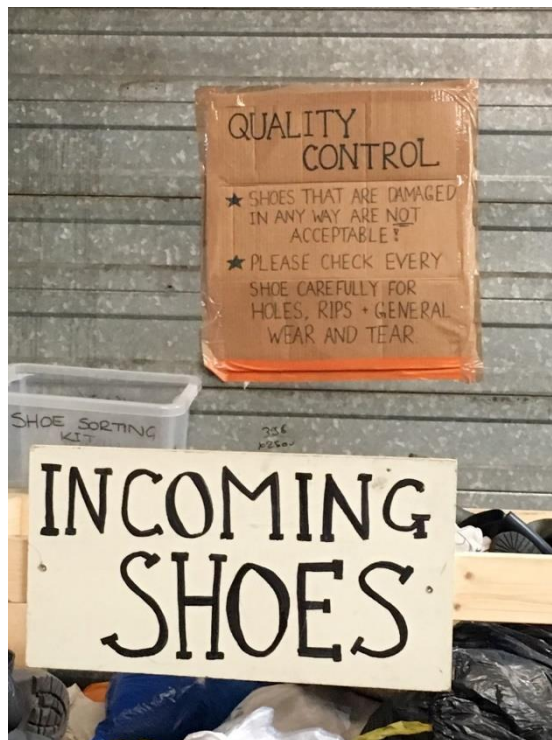 QUALITY
CONTROL
★ SHOES THAT ARE DAMAGED
IN ANY WAY ARE NOT
ACCEPTABLE!
★ PLEASE CHECK EVERY
SHOE CAREFULLY FOR
HOLES, RIPS + GENERAL
WEAR AND TEAR.
SHOE SORTING
KIT
INCOMING
SHOES